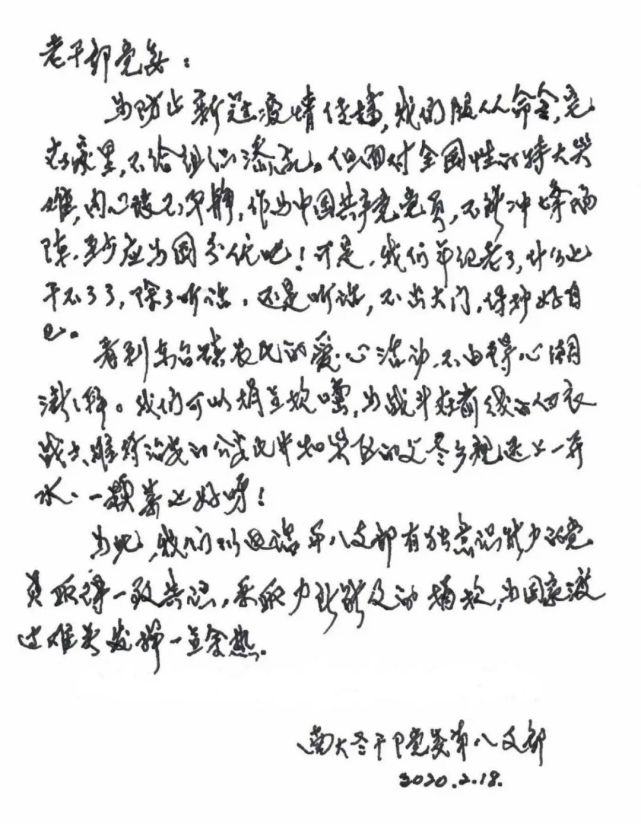 老干部党委：
为防止新冠疫情传播，我们服从命令，宅
在家里，不给组织添乱。但面对全国性的特大灾
难，内心误不平静，作为中国共产党党员，不能冲锋陷
阵，至少应为国分忧吧！可是，我们年纪老了，什么也
干不了了，除了听话，还是听话，不出大门，保护好自
己。
看到乌石镇农民的爱心活动，不由得心潮
澎湃。我们可以捐点款嘛，为战斗在前线的白衣
战士、患者和灾区的父老乡亲送上一弄
水、一颗菜也好呀！
为此，我们以电话 第八支部有独意识能力的党
员取得一致共识，采取力所能及的捐款，为国家渡
过难关发挥一点余热。
南大老干部党委第八支部
2020.2.18.